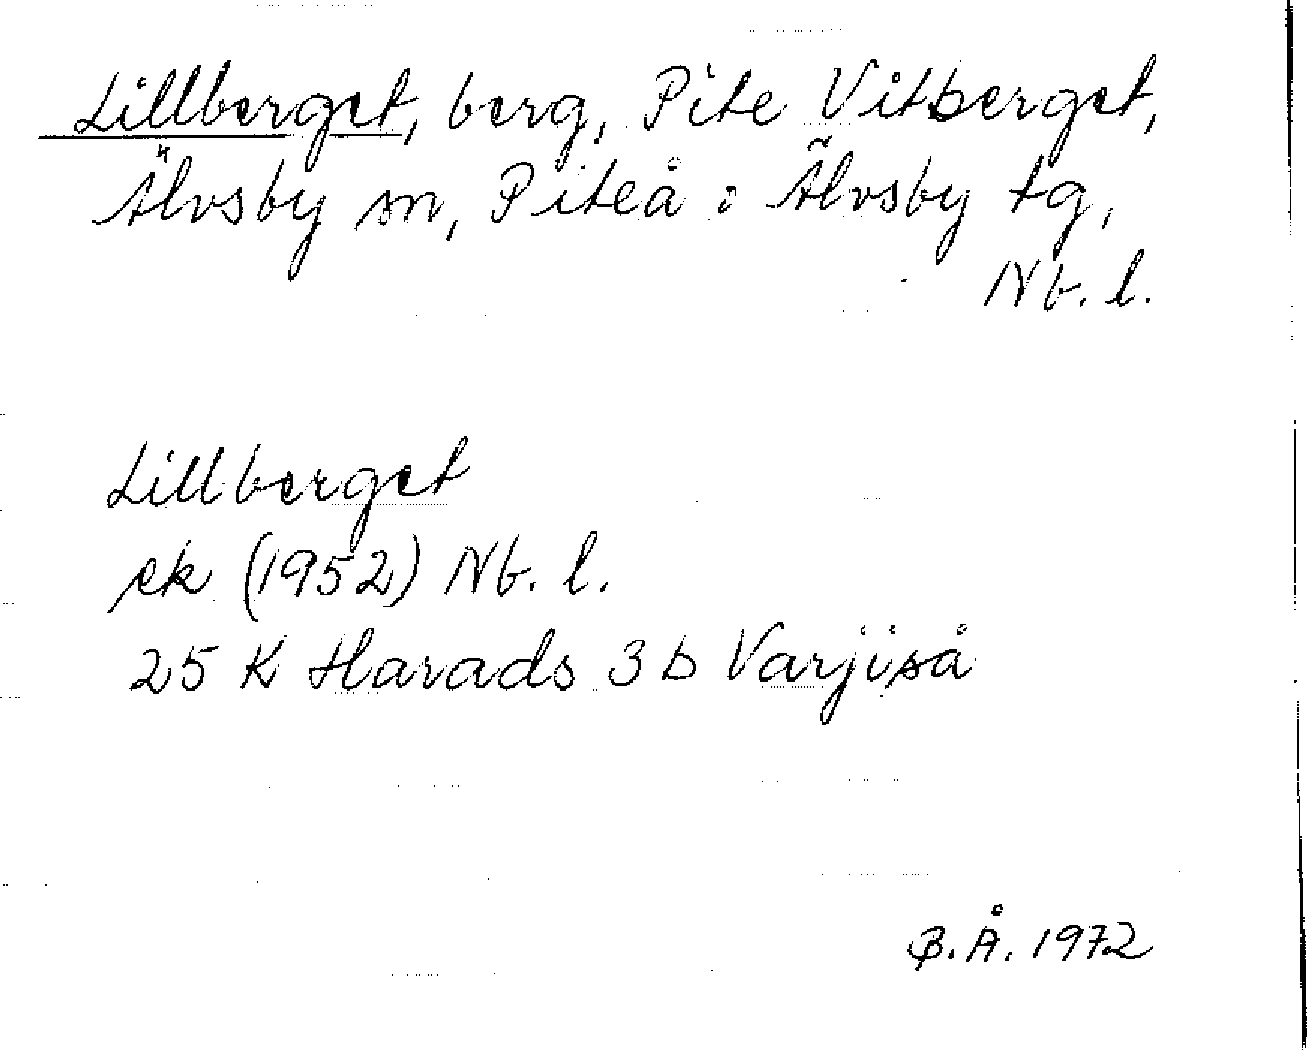 Lillberget, berg, Pite Vitberget,
Älvsby sn, Piteå o Älvsby tg,
Nb. l.
Lillberget
ek (1952) Nb. l.
25 K Harads 3 b Varjiså
B.Å. 1972